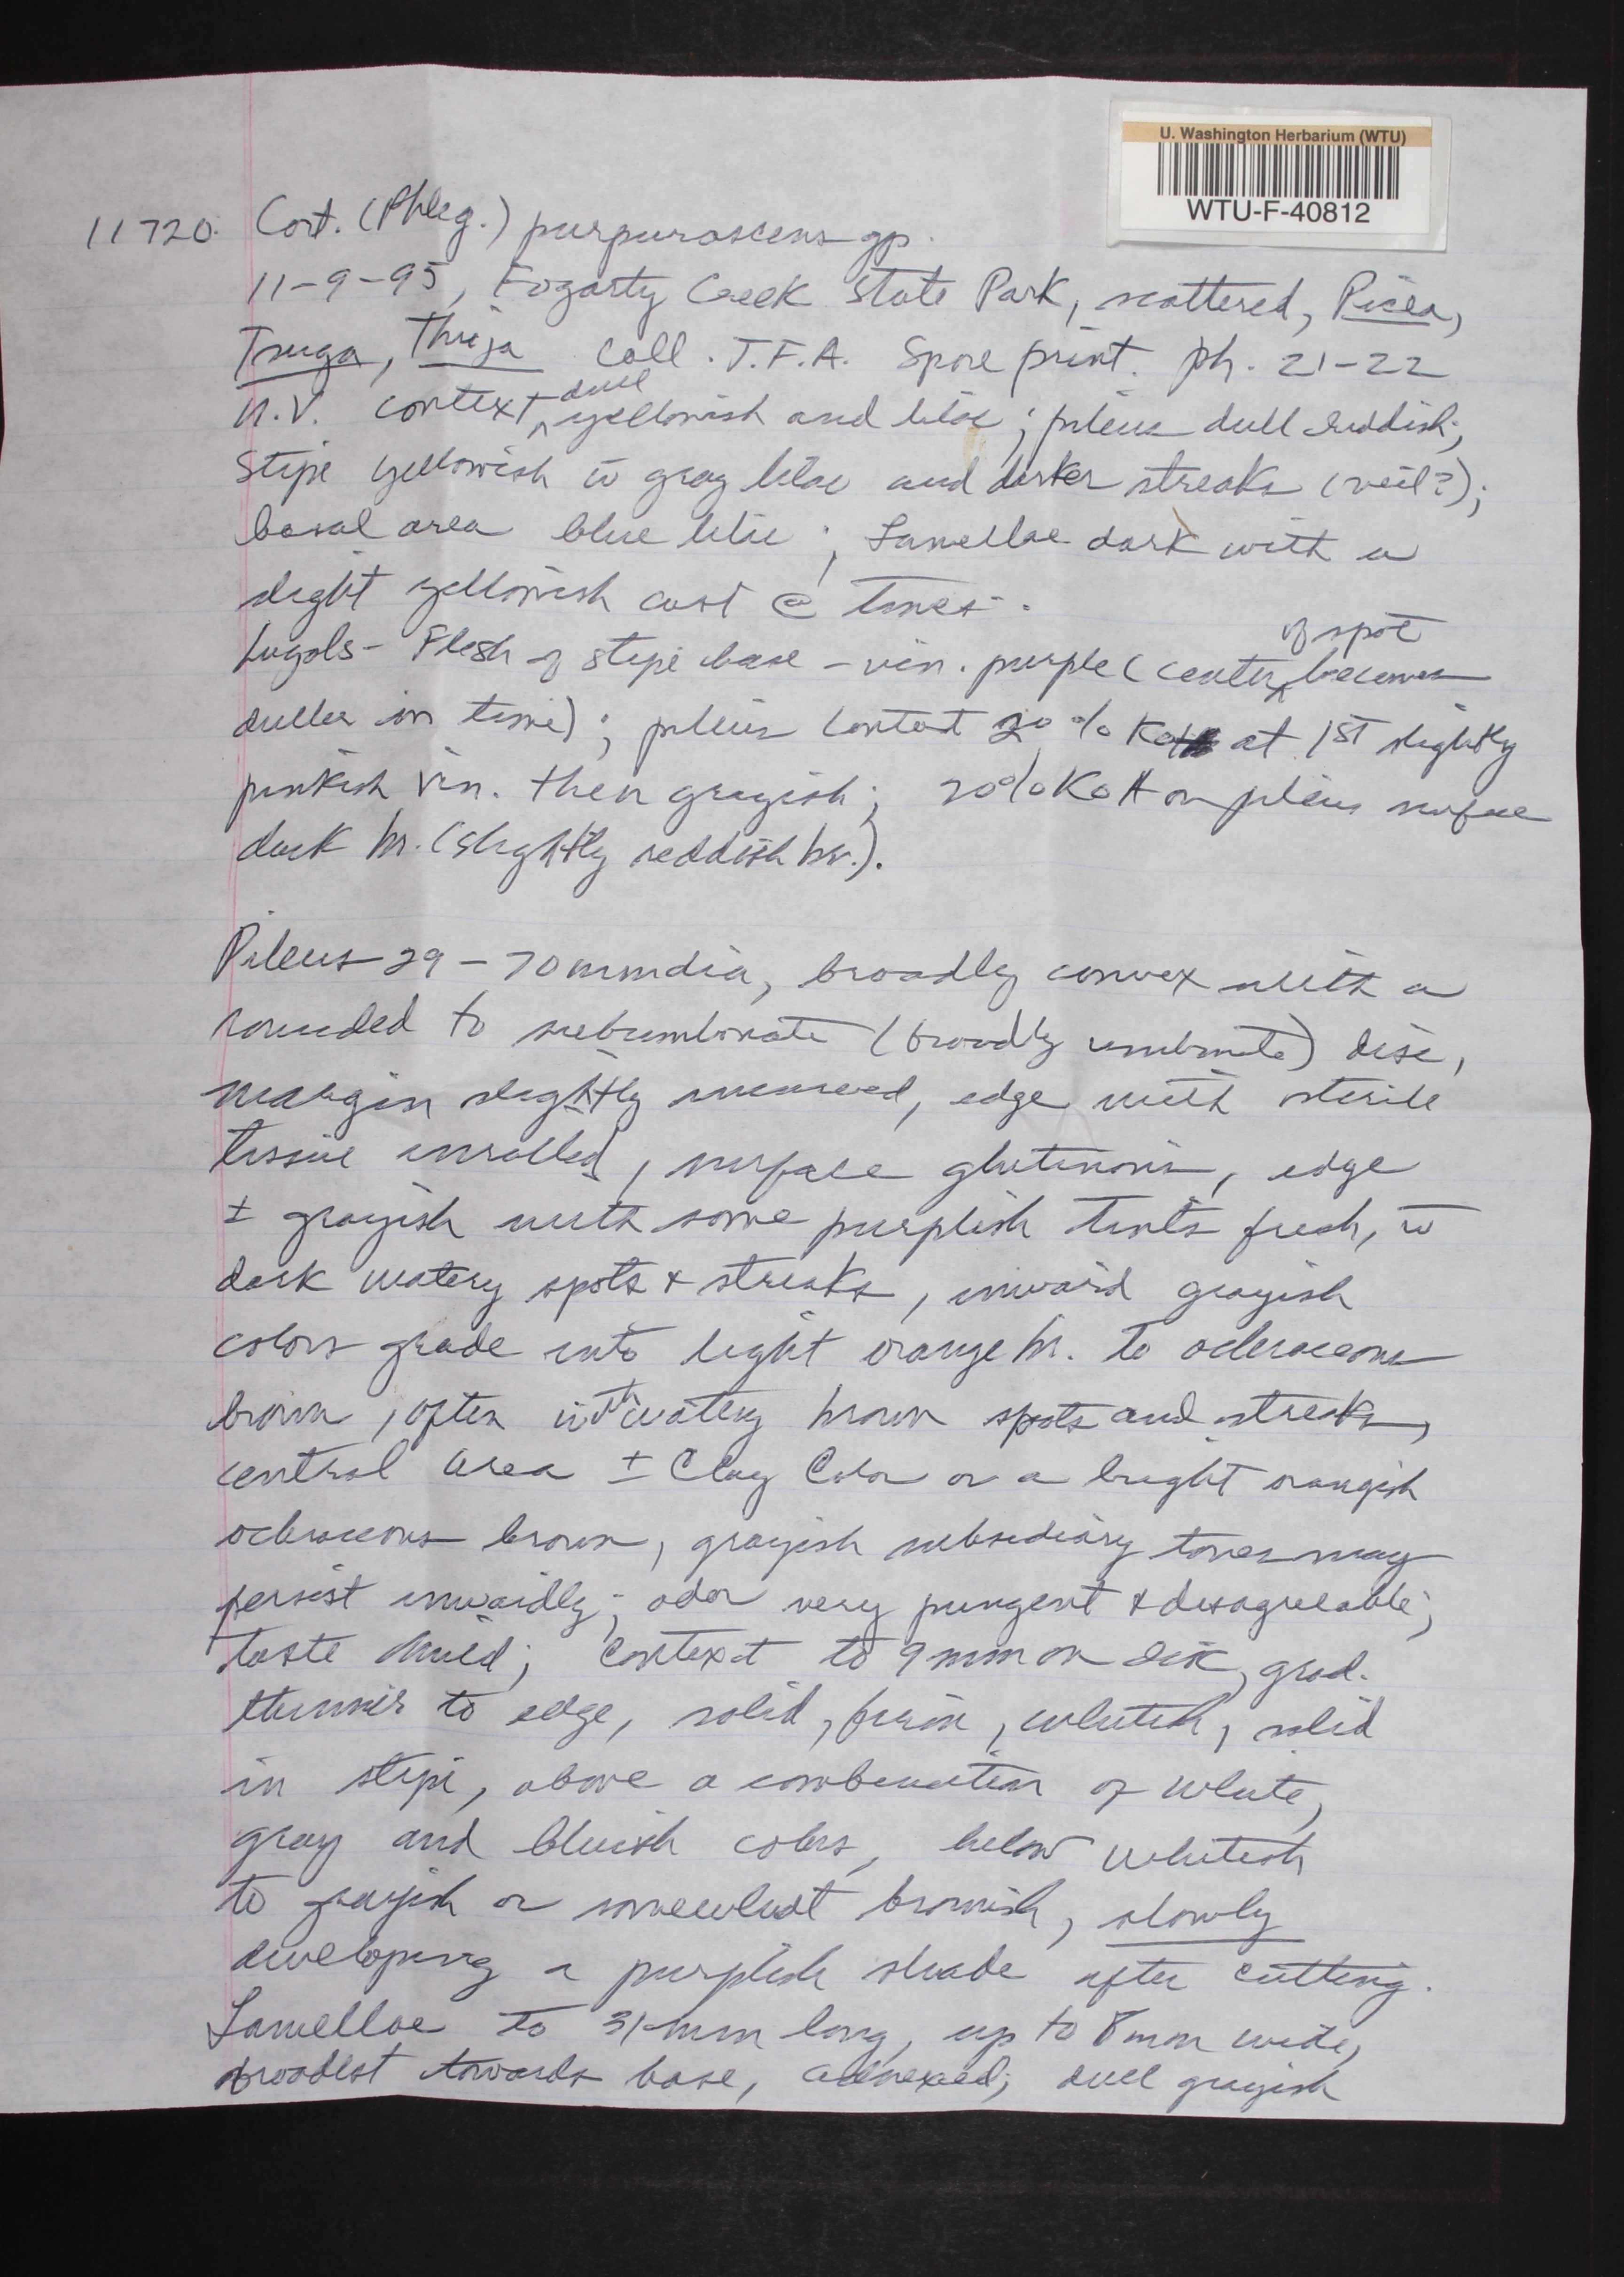 U. Washington Herbarium (WTU)
WTU-F-40812
11720. Cort. (Phleg.) purpurascens gp.
11-9-95, Fogarty Creek State Park, scattered, Picea,
Tsuga, Thuja Coll. J.F.A. Spore print. ph. 21-22
U.V. context dull yellowish and lilac; pileus dull reddish;
Stipe yellowish w̄ gray lilac and darker streaks (veil?);
basal area blue lilac; Lamellae dark with a
slight yellowish cast @ times.
Lugols - Flesh of stipe base - vin. purple (center of spot becomes
duller in time); pileus context 20% KOH at 1st slightly
pinkish vin. then grayish; 20% KOH on pileus surface
dark br. (slightly reddish br.).
Pileus 29-70 mm dia, broadly convex with a
rounded to subumbonate (broadly umbonate) disc,
margin slightly incurved, edge with sterile
tissue inrolled, surface glutinous, edge
± grayish with some purplish tints fresh, w̄
dark watery spots & streaks, inward grayish
colors grade into light orange br. to ochraceous
brown, often with watery brown spots and streaks,
central area ± Clay Color or a bright orangish
ochraceous brown, grayish subsidiary tones may
persist inwardly; odor very pungent & disagreeable;
taste mild; Context to 9 mm on disc, grad.
thinner to edge, solid, firm, whitish, solid
in stipe, above a combination of white,
gray and bluish colors, below whitish
to grayish or somewhat brownish, slowly
developing a purplish shade after cutting.
Lamellae to 31 mm long, up to 8 mm wide,
broadest towards base, adnexed; dull grayish